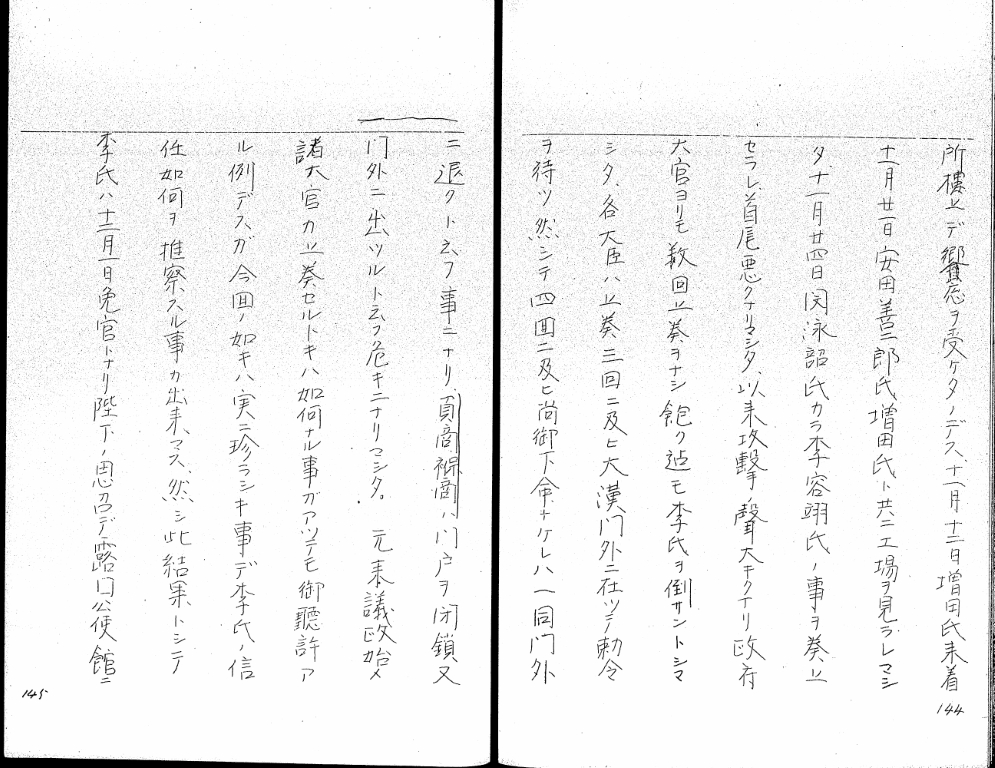 所樓上デ饗応ヲ受ケタノデス、十一月十二日増田氏来着
十一月廿一日安田善三郎氏増田氏ト共ニ工場ヲ見ラレマシ
タ十一月廿四日閔泳韶氏カラ李容翊氏ノ事ヲ奏上
セラレ首尾悪クナリマシタ、以来攻撃ノ聲大キクナリ政府
大官ヨリモ数回上奏ヲナシ飽ク迠モ李氏ヲ倒サントシマ
シタ、各大臣ハ上奏三回ニ及ヒ大漢門外ニ在ツテ勅令
ヲ待ツ然シテ四回ニ及ヒ尚御下命ナケレハ一同門外
144
ニ退クト云フ事ニナリ、負商褓商ハ門戸ヲ閉鎖又
門外ニ出ツルト云フ危キニナリマシタ。元来議政始メ
諸大官カ上奏セルトキハ如何ナル事ガアツテモ御聽許ア
ル例デスガ今回ノ如キハ実ニ珍ラシキ事デ李氏ノ信
任如何ヲ推察スル事カ出来マス、然シ此結果トシテ
李氏ハ十二月一日免官トナリ陛下ノ思召デ露国公使館ニ
145